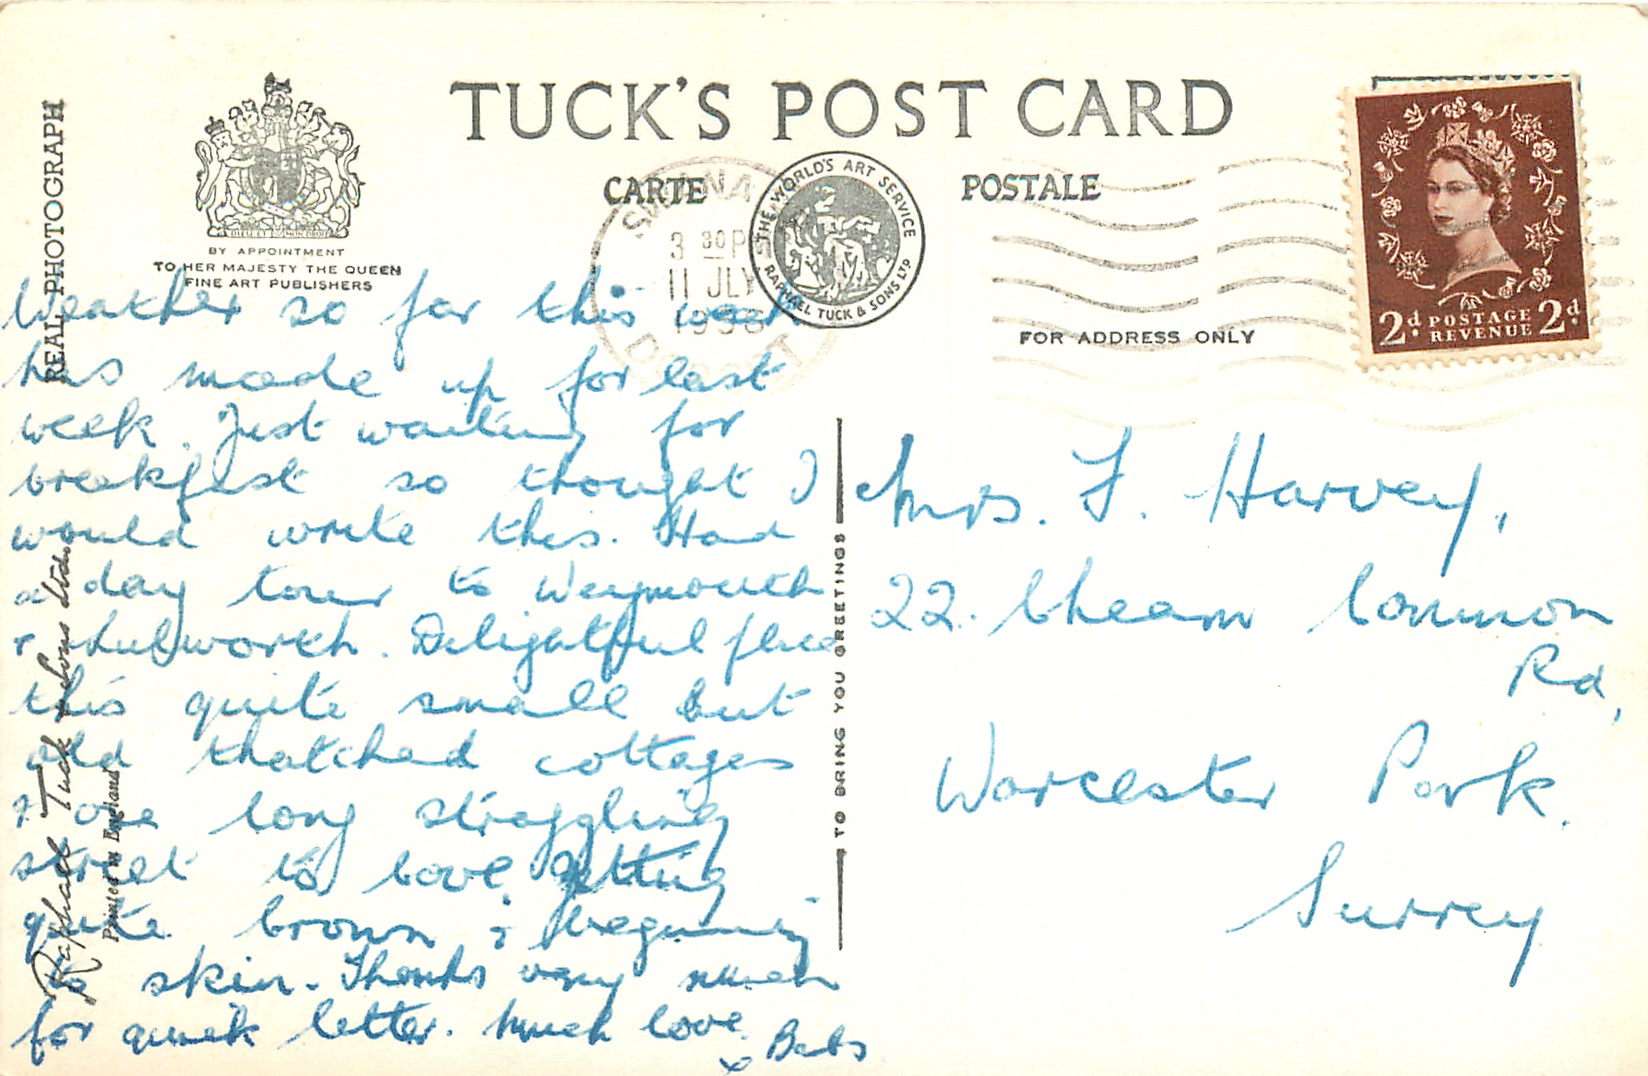 TUCK'S POST CARD
CARTE POSTALE
REAL PHOTOGRAPH
BY APPOINTMENT
TO HER MAJESTY THE QUEEN
FINE ART PUBLISHERS
THE WORLD'S ART SERVICE
RAPHAEL TUCK & SONS LTD
3 30 P
11 JLY
FOR ADDRESS ONLY
2d POSTAGE 2d
REVENUE
Weather so far this week
has made up for last
week. Just waiting for
breakfast so thought I
would write this. Had
a day tour to Weymouth
& Lulworth. Delightful place
this quite small but
old thatched cottages
& one long straggling
street to cove. Getting
quite brown & beginning
to skin. Thanks very much
for quick letter. Much love
x Babs
Raphael Tuck & Sons Ltd.
Printed in England
TO BRING YOU GREETINGS
Mrs. F. Harvey,
22. Cheam Common
Rd,
Worcester Park.
Surrey